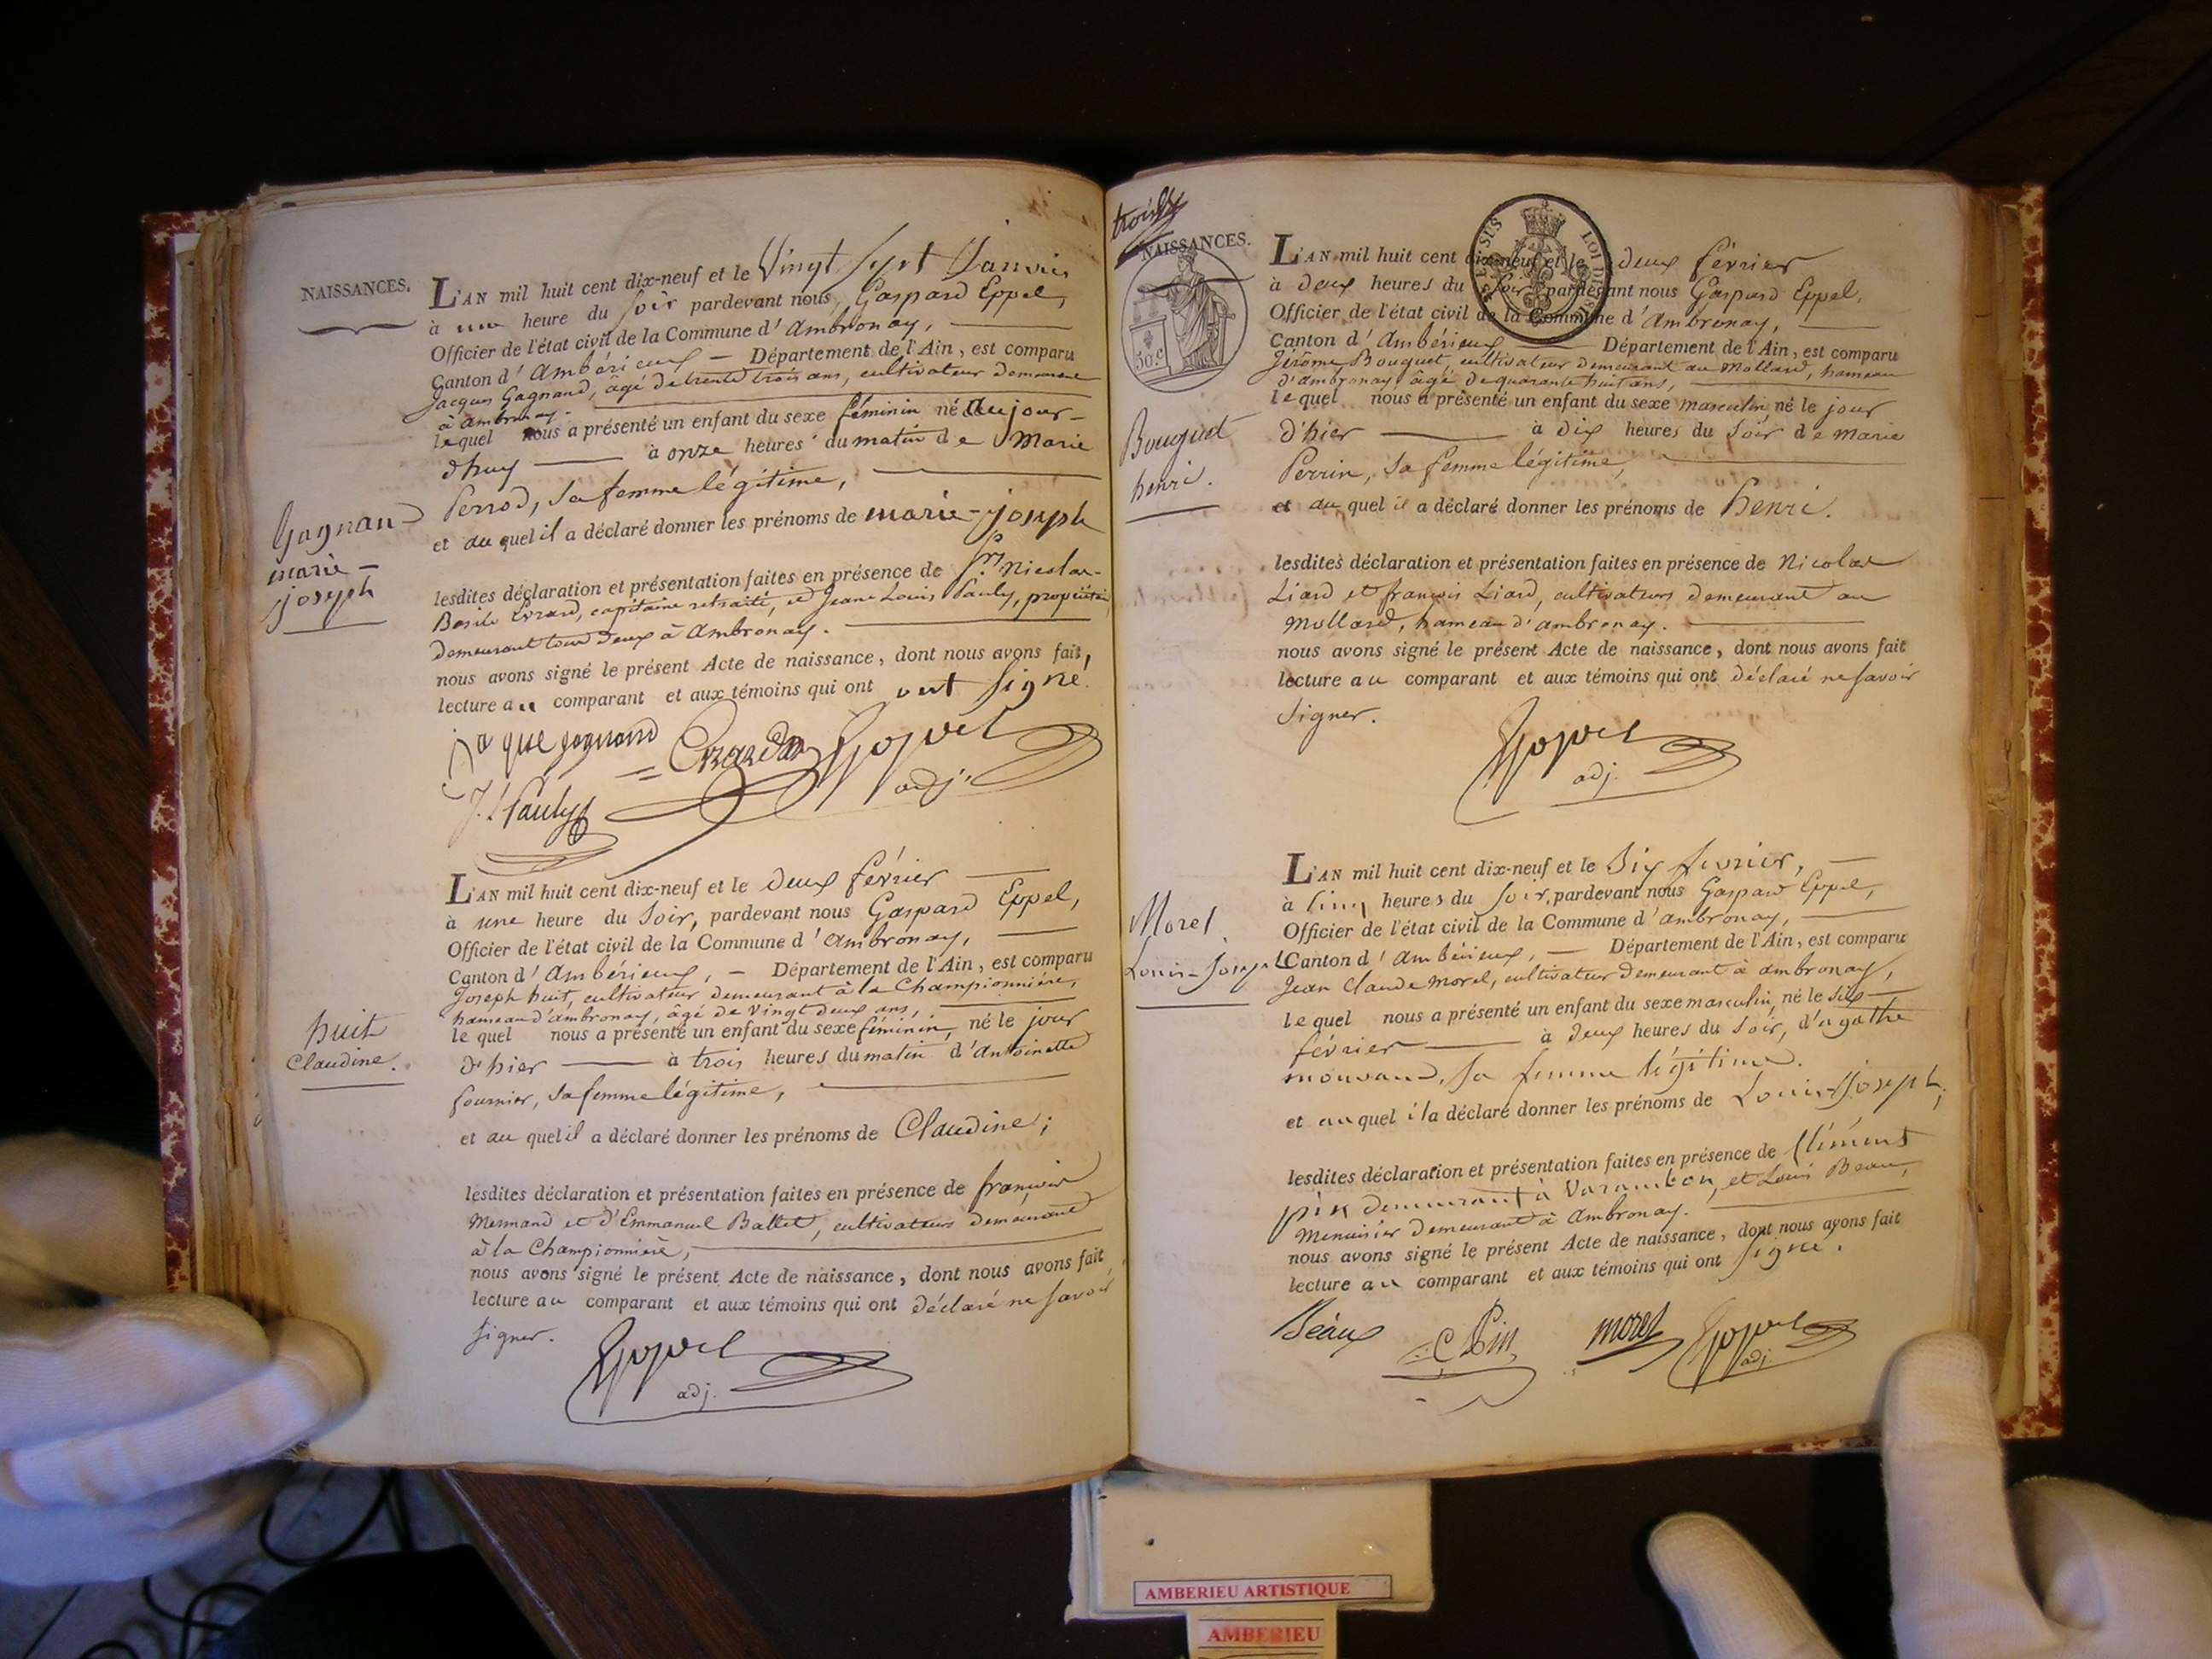 NAISSANCES.
L'AN mil huit cent dix-neuf et le Vingt Sept Janvier
à une heure du Soir pardevant nous, Gaspard Eppel,
Officier de l'état civil de la Commune d'Ambronay,
Canton d'Ambérieux — Département de l'Ain, est comparu
Jacques Gagnand, âgé de trente trois ans, cultivateur demeurant
à ambronay.
lequel nous a présenté un enfant du sexe féminin né aujour-
d'huy à onze heures du matin de Marie
Perrod, sa femme légitime,
et au quel il a déclaré donner les prénoms de marie-joseph
Gagnand
marie-
joseph
lesdites déclaration et présentation faites en présence de Sr. Nicolas-
Basile Evrard, capitaine retraité, et Jeane Louis Pauly, propriétaire
demeurant tous deux à Ambronay.
nous avons signé le présent Acte de naissance, dont nous avons fait,
lecture au comparant et aux témoins qui ont ont signé.
jaque gagnand Evrard Eppel
J. L. Pauly adj.
L'AN mil huit cent dix-neuf et le deux février
à une heure du Soir, pardevant nous Gaspard Eppel,
Officier de l'état civil de la Commune d'ambronay,
Canton d'Ambérieux, — Département de l'Ain, est comparu
Joseph huit, cultivateur demeurant à la Championnière,
hameau d'ambronay, âgé de Vingt deux ans,
le quel nous a présenté un enfant du sexe féminin, né le jour
d'hier à trois heures du matin d'Antoinette
fournier, sa femme légitime,
et au quel il a déclaré donner les prénoms de Claudine;
huit
Claudine.
lesdites déclaration et présentation faites en présence de françois
Mermand et d'Emmanuel Ballet, cultivateurs demeurant
à la Championnière,
nous avons signé le présent Acte de naissance, dont nous avons fait
lecture au comparant et aux témoins qui ont déclaré ne savoir
signer.
Eppel
adj.
NAISSANCES.
50 c
L'AN mil huit cent dix-neuf et le deux février
à deux heures du Soir pardevant nous Gaspard Eppel,
Officier de l'état civil de la Commune d'ambronay,
Canton d'Ambérieux Département de l'Ain, est comparu
Jérôme Bouquet, cultivateur demeurant au Mollard, hameau
d'ambronay, âgé de quarante huit ans,
lequel nous a présenté un enfant du sexe masculin né le jour
d'hier à dix heures du Soir de marie
Perrin, sa femme légitime,
et au quel il a déclaré donner les prénoms de henri.
Bouquet
henri.
lesdites déclaration et présentation faites en présence de Nicolas
Liard et françois Liard, cultivateurs demeurant au
Mollard, hameau d'ambronay.
nous avons signé le présent Acte de naissance, dont nous avons fait
lecture au comparant et aux témoins qui ont déclaré ne savoir
signer.
Eppel
adj.
L'AN mil huit cent dix-neuf et le Six fevrier,
à Cinq heures du Soir, pardevant nous Gaspard Eppel,
Officier de l'état civil de la Commune d'ambronay,
Canton d'Ambérieux, — Département de l'Ain, est comparu
Jean Claude Morel, cultivateur demeurant à ambronay,
lequel nous a présenté un enfant du sexe masculin, né le Six
février à deux heures du Soir, d'agathe
sa femme légitime.
et au quel il a déclaré donner les prénoms de Louis-Joseph,
Morel
Louis-Joseph
lesdites déclaration et présentation faites en présence de Clément
pin demeurant à Varambon, et Louis Beau,
Menuisier demeurant à Ambronay.
nous avons signé le présent Acte de naissance, dont nous avons fait
lecture au comparant et aux témoins qui ont signé.
Beau C Pin morel Eppel
adj.
AMBERIEU ARTISTIQUE
AMBERIEU